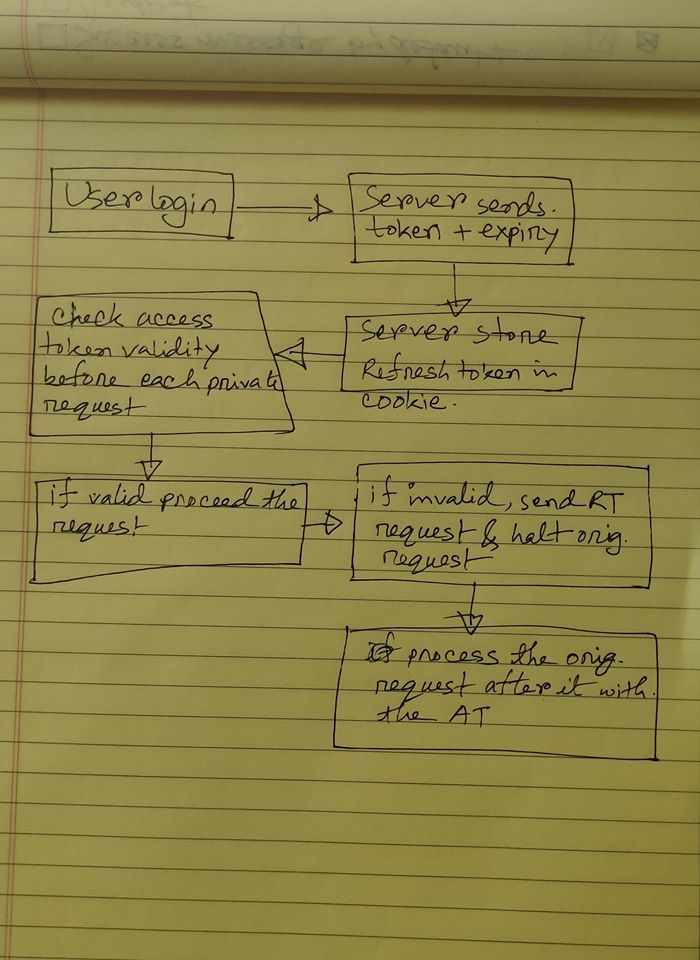 User login
Server sends.
token + expiry
Server store
Refresh token in
cookie.
Check access
token validity
before each private
request
if valid proceed the
request
if invalid, send RT
request & halt orig.
request
process the orig.
request after it with.
the AT